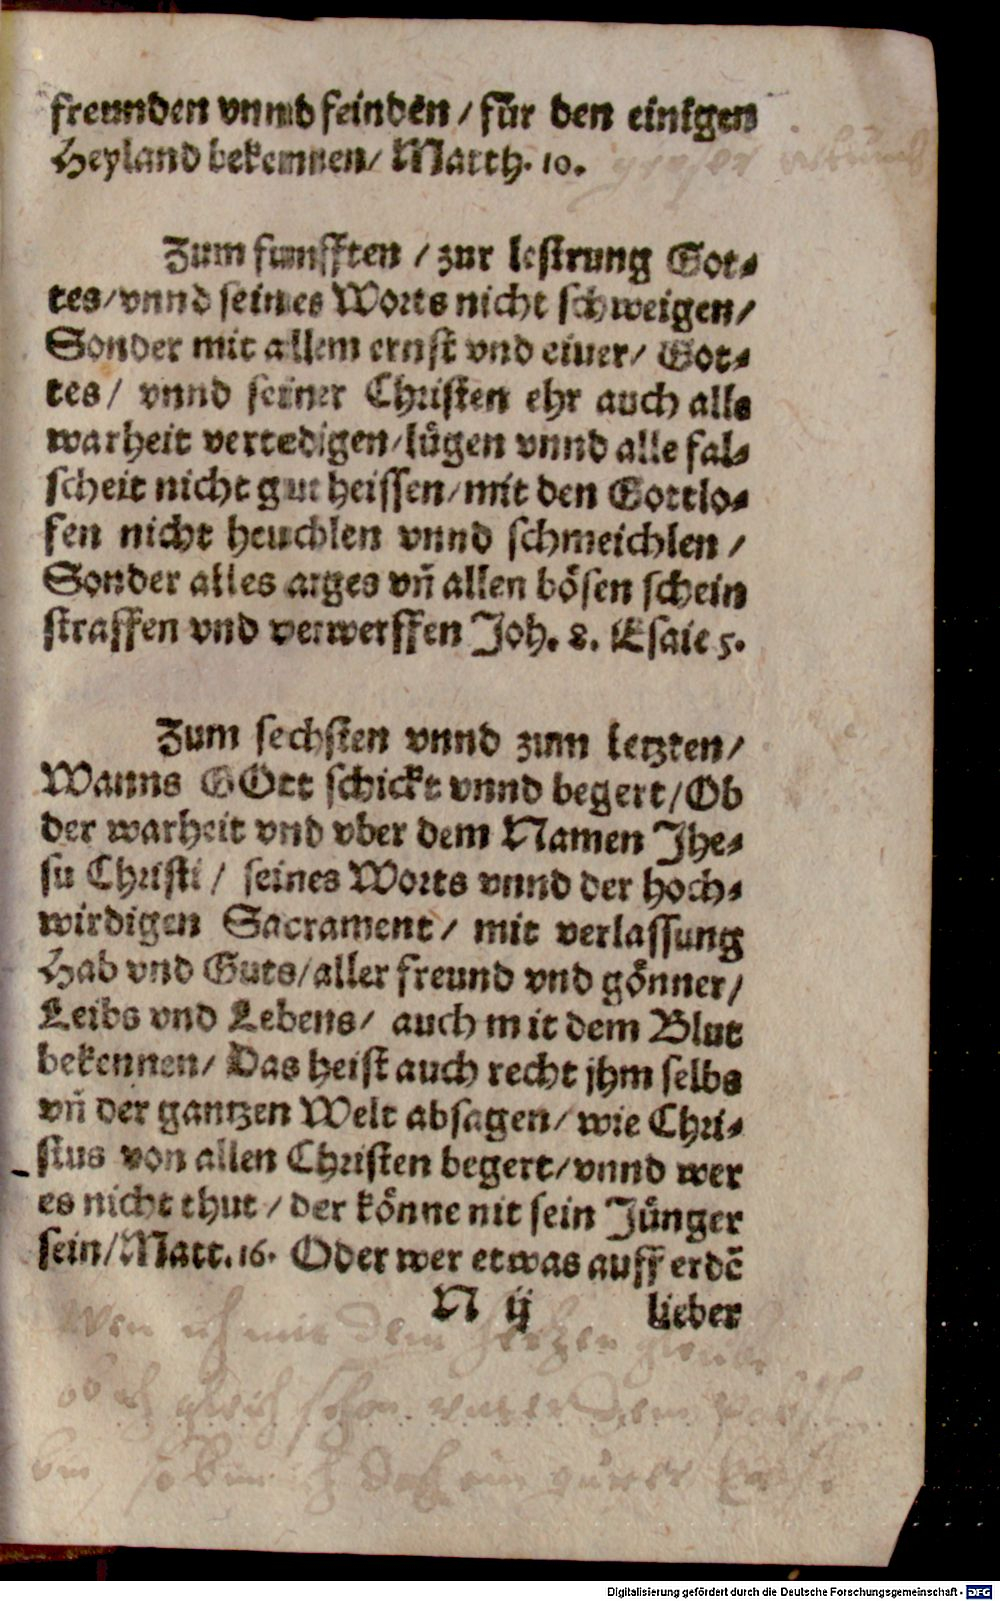 freunden vnnd feinden / für den einigen
Heyland bekennen / Matth. 10.
Zum funfften / zur lestrung Got⸗
tes / vnnd seines Worts nicht schweigen /
Sonder mit allem ernst vnd eiuer / Got⸗
tes / vnnd seiner Christen ehr auch alle
warheit vertedigen / lügen vnnd alle fal⸗
scheit nicht gut heissen / mit den Gottlo⸗
sen nicht heuchlen vnnd schmeichlen /
Sonder alles arges vñ allen bösen schein
straffen vnd verwerffen Joh. 8. Esaie 5.
Zum sechsten vnnd zum letzten /
Wanns GOtt schickt vnnd begert / Ob
der warheit vnd vber dem Namen Jhe⸗
su Christi / seines Worts vnnd der hoch⸗
wirdigen Sacrament / mit verlassung
Hab vnd Guts / aller freund vnd gönner /
Leibs vnd Lebens / auch mit dem Blut
bekennen / Das heist auch recht jhm selbs
vñ der gantzen Welt absagen / wie Chri⸗
stus von allen Christen begert / vnnd wer
es nicht thut / der könne nit sein Jünger
sein / Matt. 16. Oder wer etwas auff erdē
N ij lieber
Wen ich mit dem hertzen
ob ich gleich schon vnter dem
bin so bin ich doch ein guter
Digitalisierung gefördert durch die Deutsche Forschungsgemeinschaft - DFG